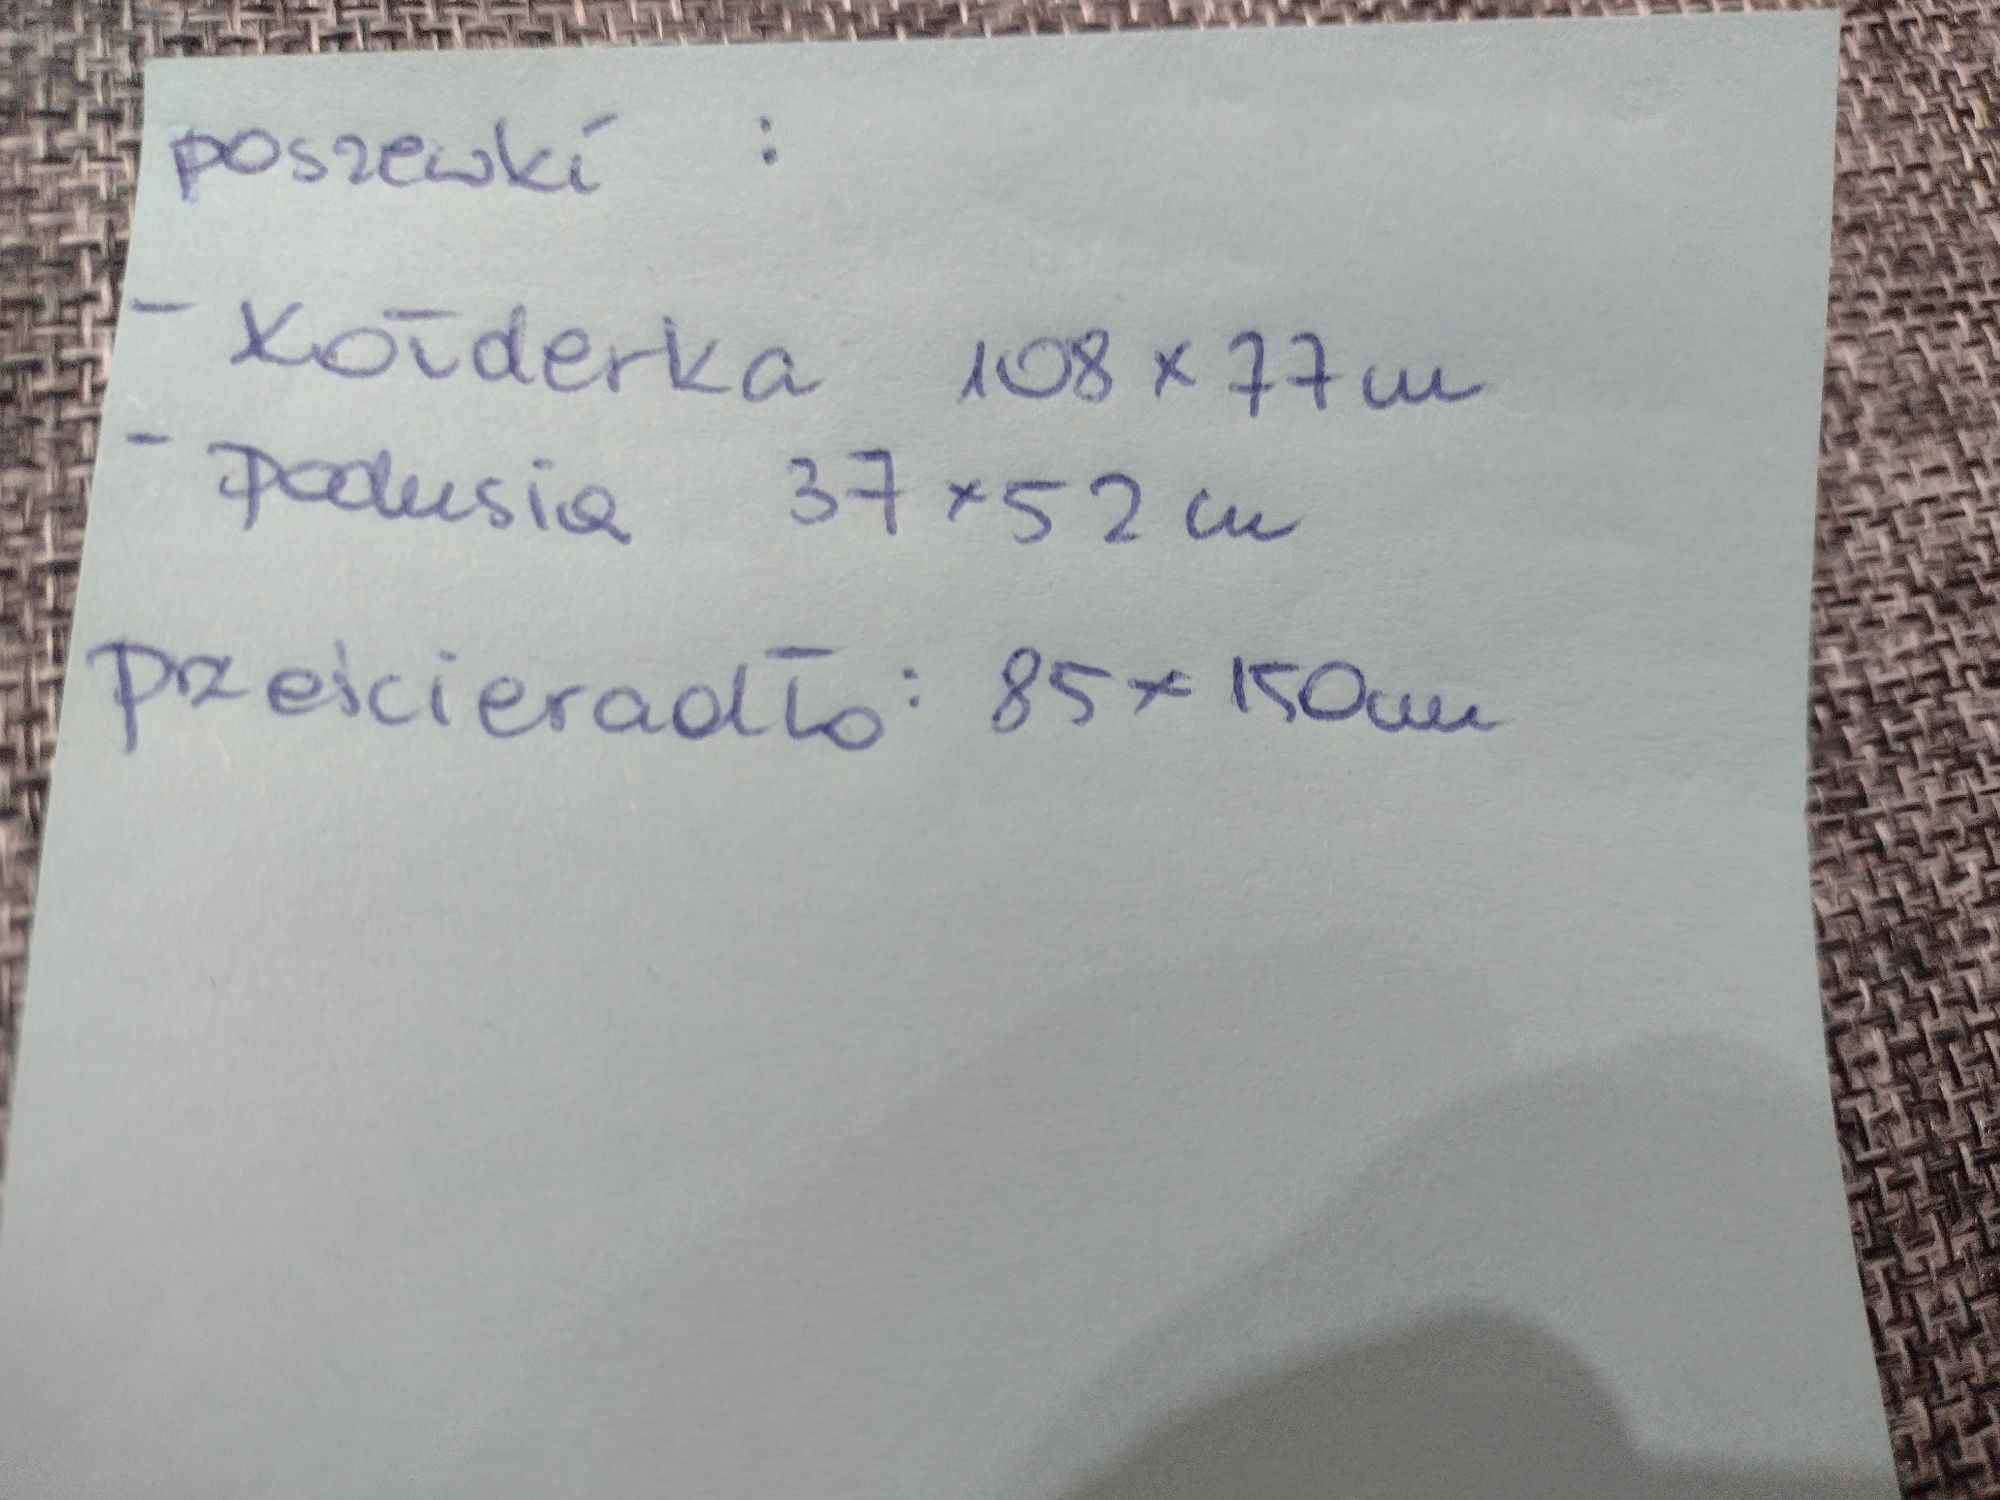 poszewki :
- Kołderka 108 x 77 cm
- Podusia 37 x 52 cm
Prześcieradło: 85 x 150 cm